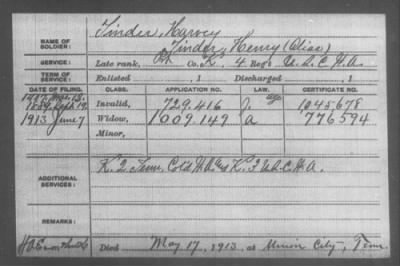 NAME OF SOLDIER: Tinder, Harvey
Tinder, Henry (Alias)
SERVICE: Late rank, Pt Co. K, 4 Reg't U.S.C.H.A.
TERM OF SERVICE: Enlisted , 1 Discharged , 1
DATE OF FILING. CLASS. APPLICATION NO. LAW. CERTIFICATE NO.
1889 Sept. 19 Invalid, 729.416 1045678
1913 June 7 Widow, 1009.149 a 776594
Minor,
ADDITIONAL SERVICES: K. 2 Tenn. Cold H.A. K. 3 U.S.C.H.A.
REMARKS:
Died May 17, 1913, at Union City, Tenn.